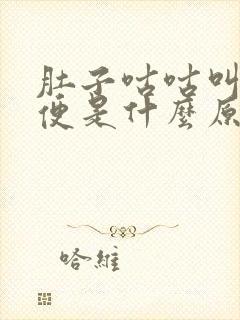 肚子咕咕叫
便是什麼原
哈維